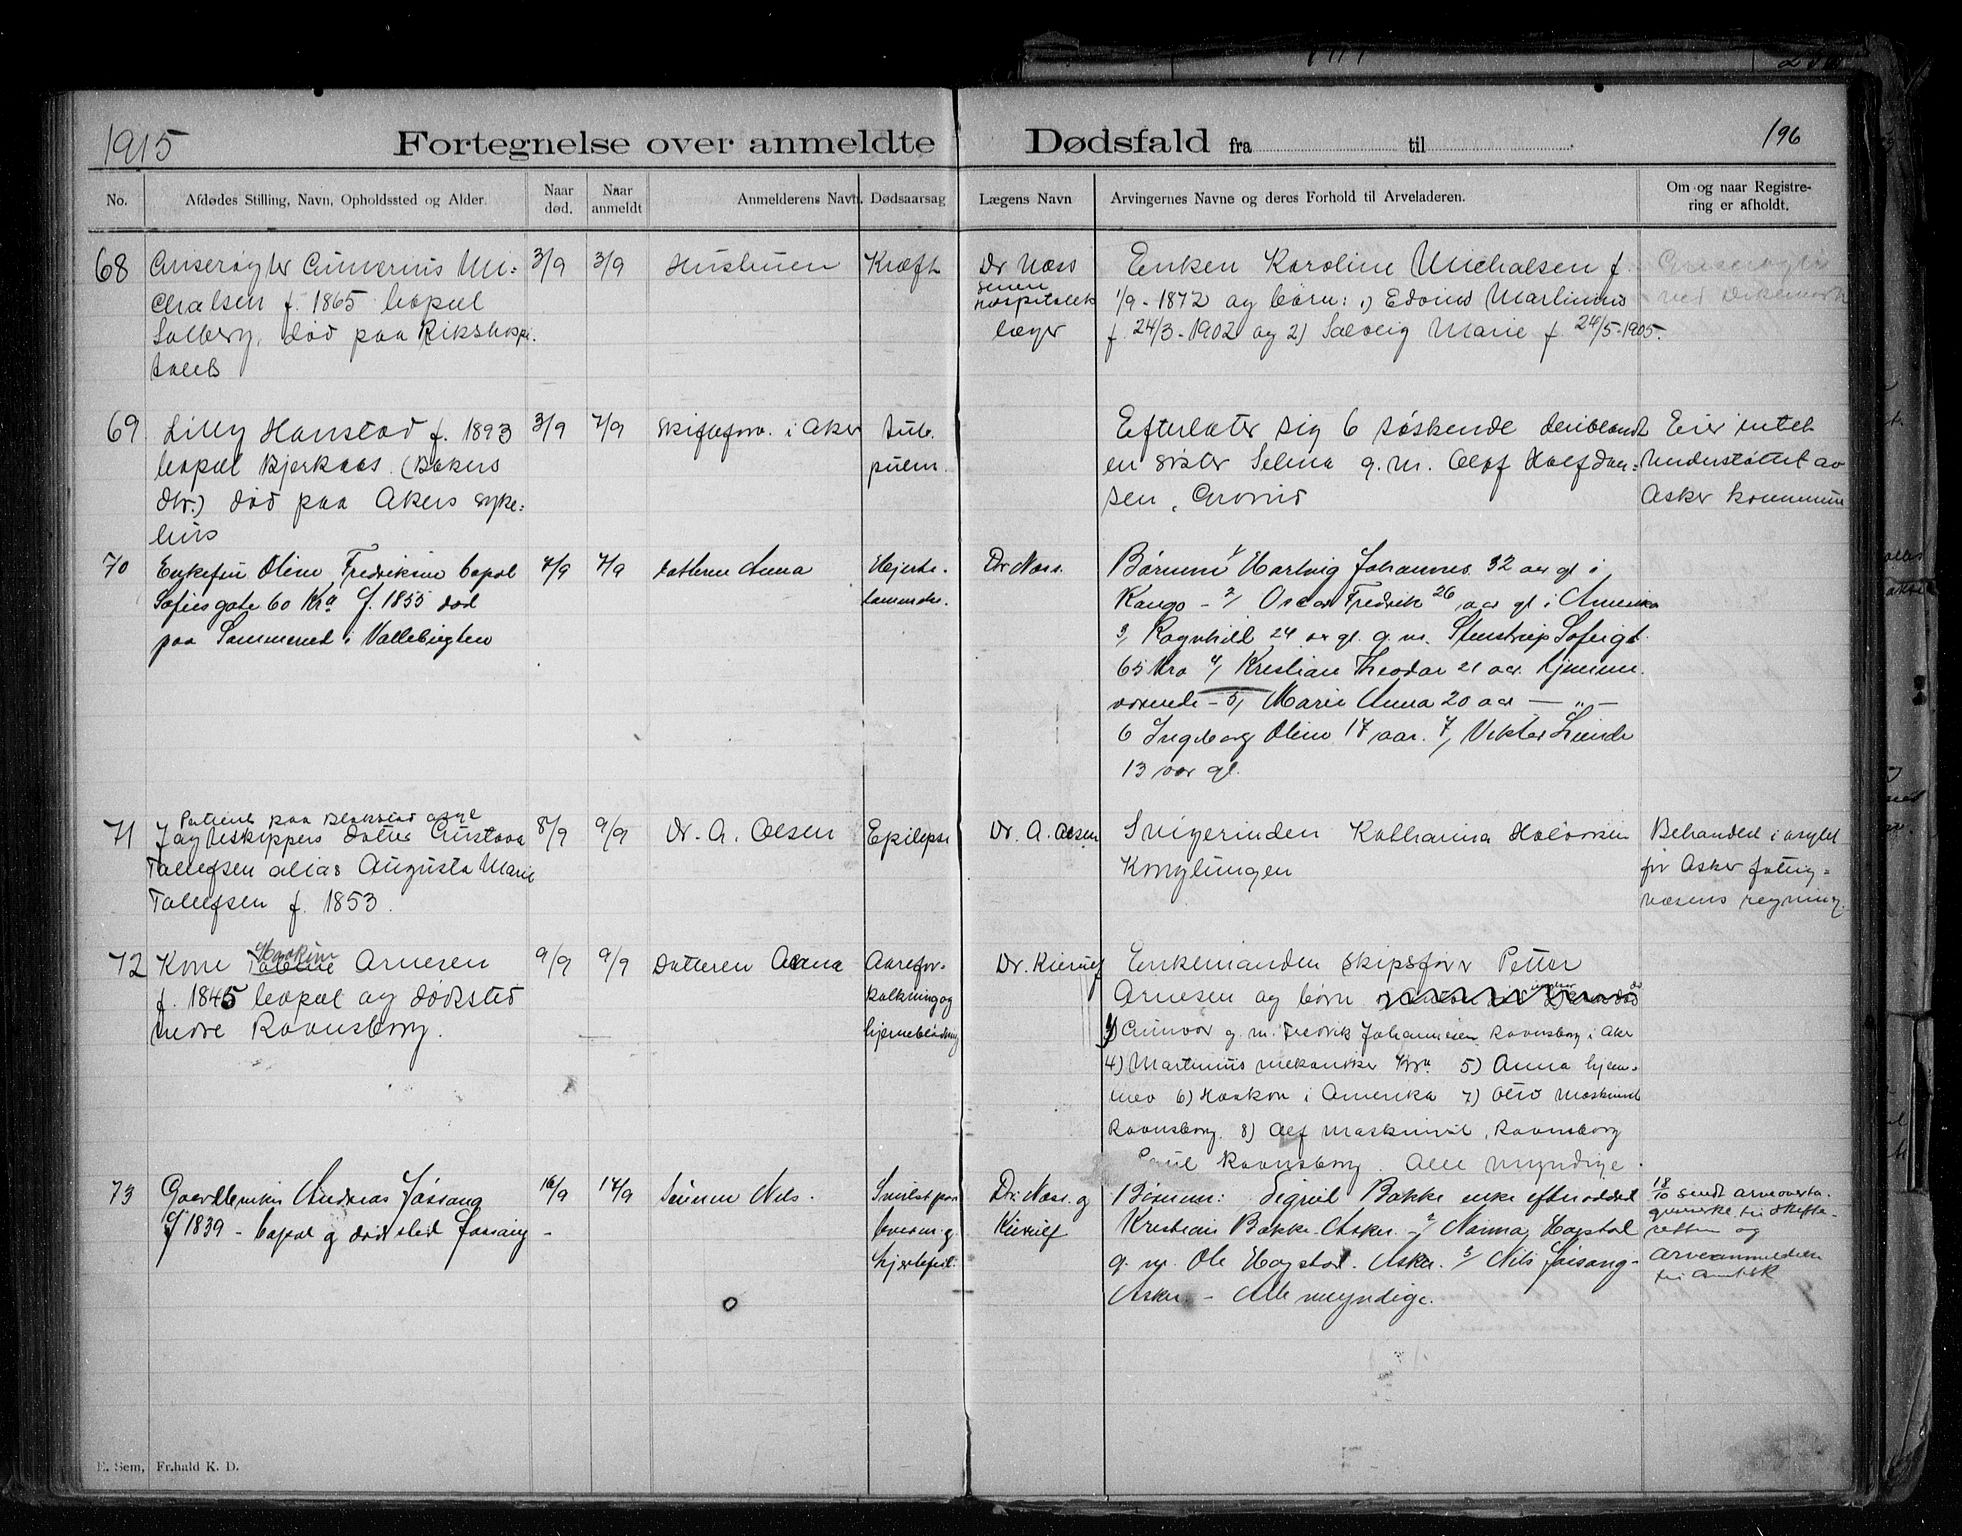 1915
Fortegnelse over anmeldte Dødsfald fra til
196
No.
Afdødes Stilling, Navn, Opholdssted og Alder.
Naar død.
Naar anmeldt
Anmelderens Navn.
Dødsaarsag
Lægens Navn
Arvingernes Navne og deres Forhold til Arveladeren.
Om og naar Registre-
ring er afholdt.
68
Gunerius Mi-
chalsen f. 1865 bopæl
Solberg, død paa Rikshospi.
talet
3/9
3/9
Hustruen
Kræft
Dr Næss
senere
hospitalets
læger
Enken Karoline Michalsen f.
1/9 - 1872 og børn: 1) Edvind Martinius
f. 24/3 - 1902 og 2) Solveig Marie f. 24/5-1905.
69
Lilly Hanstad f. 1893
bopæl Bjerkaas (Bakers
dtr.) død paa Akers syke-
hus
3/9
7/9
Skifteforv. i Aker
tub.
pulm.
Efterlater sig 6 søskende deriblandt
en søster Selma g. m. Olaf Halfdan-
sen,
Eier intet
Understøttet av
Asker kommune
70
Enkefru Oline Fredriksen bopæl
Sofies gate 60 Kra f. 1855 død
paa Sommersted i Vollebugten
7/9
7/9
datteren Anna
Hjerte-
lammelse.
Dr Næss.
Børnene 1/ Hartvig Johannes 32 aar gl i
Kongo - 2/ Oscar Fredrik 26 aar gl i Amerika
3, Ragnhild 24 aar gl. g. m. Stenstrup Sofiesgt
65 Kra 4/ Kristian Theodor 21 aar. hjemme-
værende - 5, Marie Anna 20 aar — „ —
6 Ingeborg Oline 17 aar. 7, Viktor
13 aar gl.
71
Patient paa Blakstad asyl
Jagtskippers datter Gustava
Tollefsen alias Augusta Marie
Tollefsen f. 1853.
8/9
9/9
Dr. A. Olsen
Epilepsi
Dr. A. Olsen
Svigerinden Katharina Halvorsen
Konglungen
Behandlet i asylet
for Asker fattig-
væsens regning.
72
Kone Arnesen
f. 1845 bopæl og dødsted
nedre Ravnsborg.
9/9
9/9
Datteren Anna
Aarefor-
kalkning og
hjerneblødning
Dr. Kierulf
Enkemanden skipsfører Petter
Arnesen og børn
3) Gunvor g. m. Fredrik Johannesen Ravnsborg i Aker
4) Martinius mekaniker Kra 5) Anna hjem-
mev 6) Haakon i Amerika 7) Otto Maskinist
Ravnsborg. 8) Alf maskinist, Ravnsborg
Ravnsborg. Alle myndige.
73
Andreas Jøssang
f 1839 - bopæl og dødsted Jøssang -
16/9
17/9
Sønnen Nils.
hjertefeil.
Dr. Næss. og
Kierulf
Børnene: Sigrid Bakke enke efter
Kristian Bakke Asker. - 2/ Nanna Hogstad
g. m. Ole Hogstad. Asker. 3/ Nils Jøssang -
Asker. - Alle myndige.
18/10 sendt arveoverta-
gelse til Skifte-
retten og
arveanmeldelse
til Amtsk
E. Sem, Fr.hald K. D.